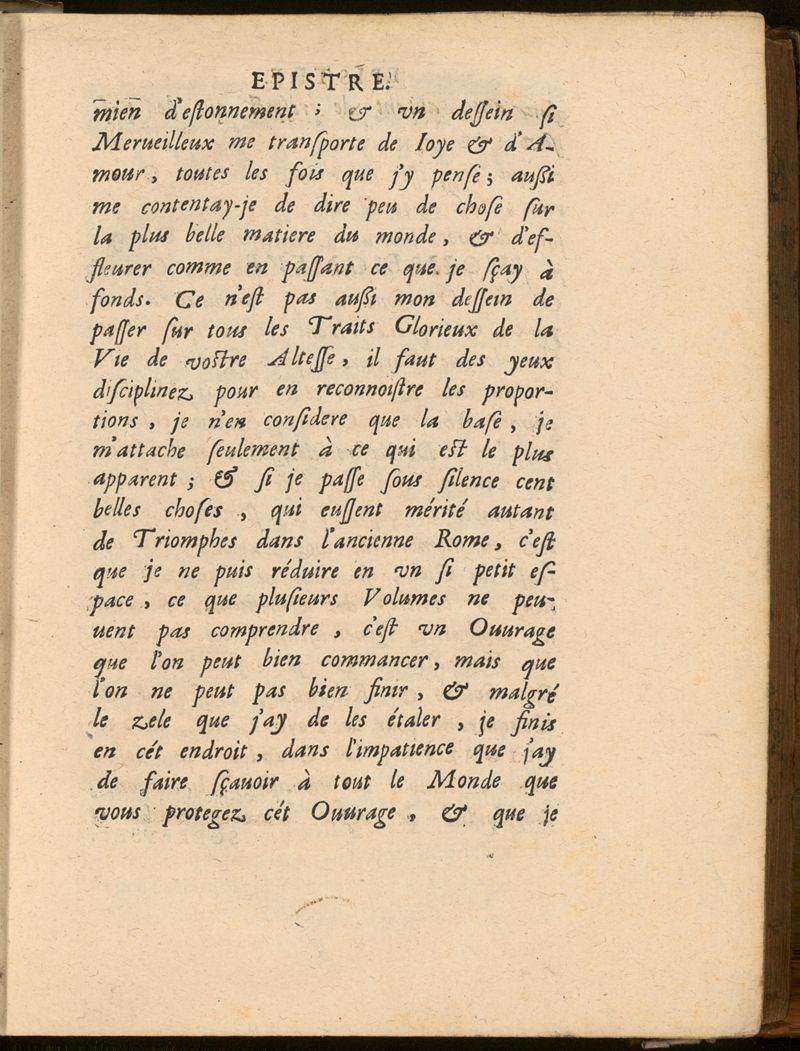 EPISTRE.
mien d'eſtonnement ; & vn deſſein ſi
Merueilleux me tranſporte de Ioye & d'A-
mour, toutes les fois que j'y penſe ; auſſi
me contentay-je de dire peu de choſe ſur
la plus belle matiere du monde, & d'ef-
fleurer comme en paſſant ce que je ſçay à
fonds. Ce n'eſt pas auſſi mon deſſein de
paſſer ſur tous les Traits Glorieux de la
Vie de voſtre Alteſſe, il faut des yeux
diſciplinez pour en reconnoiſtre les propor-
tions, je n'en conſidere que la baſe, je
m'attache ſeulement à ce qui eſt le plus
apparent ; & ſi je paſſe ſous ſilence cent
belles choſes, qui euſſent mérité autant
de Triomphes dans l'ancienne Rome, c'eſt
que je ne puis réduire en vn ſi petit eſ-
pace, ce que pluſieurs Volumes ne peu-
uent pas comprendre, c'eſt vn Ouurage
que l'on peut bien commancer, mais que
l'on ne peut pas bien finir, & malgré
le zele que j'ay de les étaler, je finis
en cét endroit, dans l'impatience que j'ay
de faire ſçauoir à tout le Monde que
vous protegez cét Ouurage, & que je